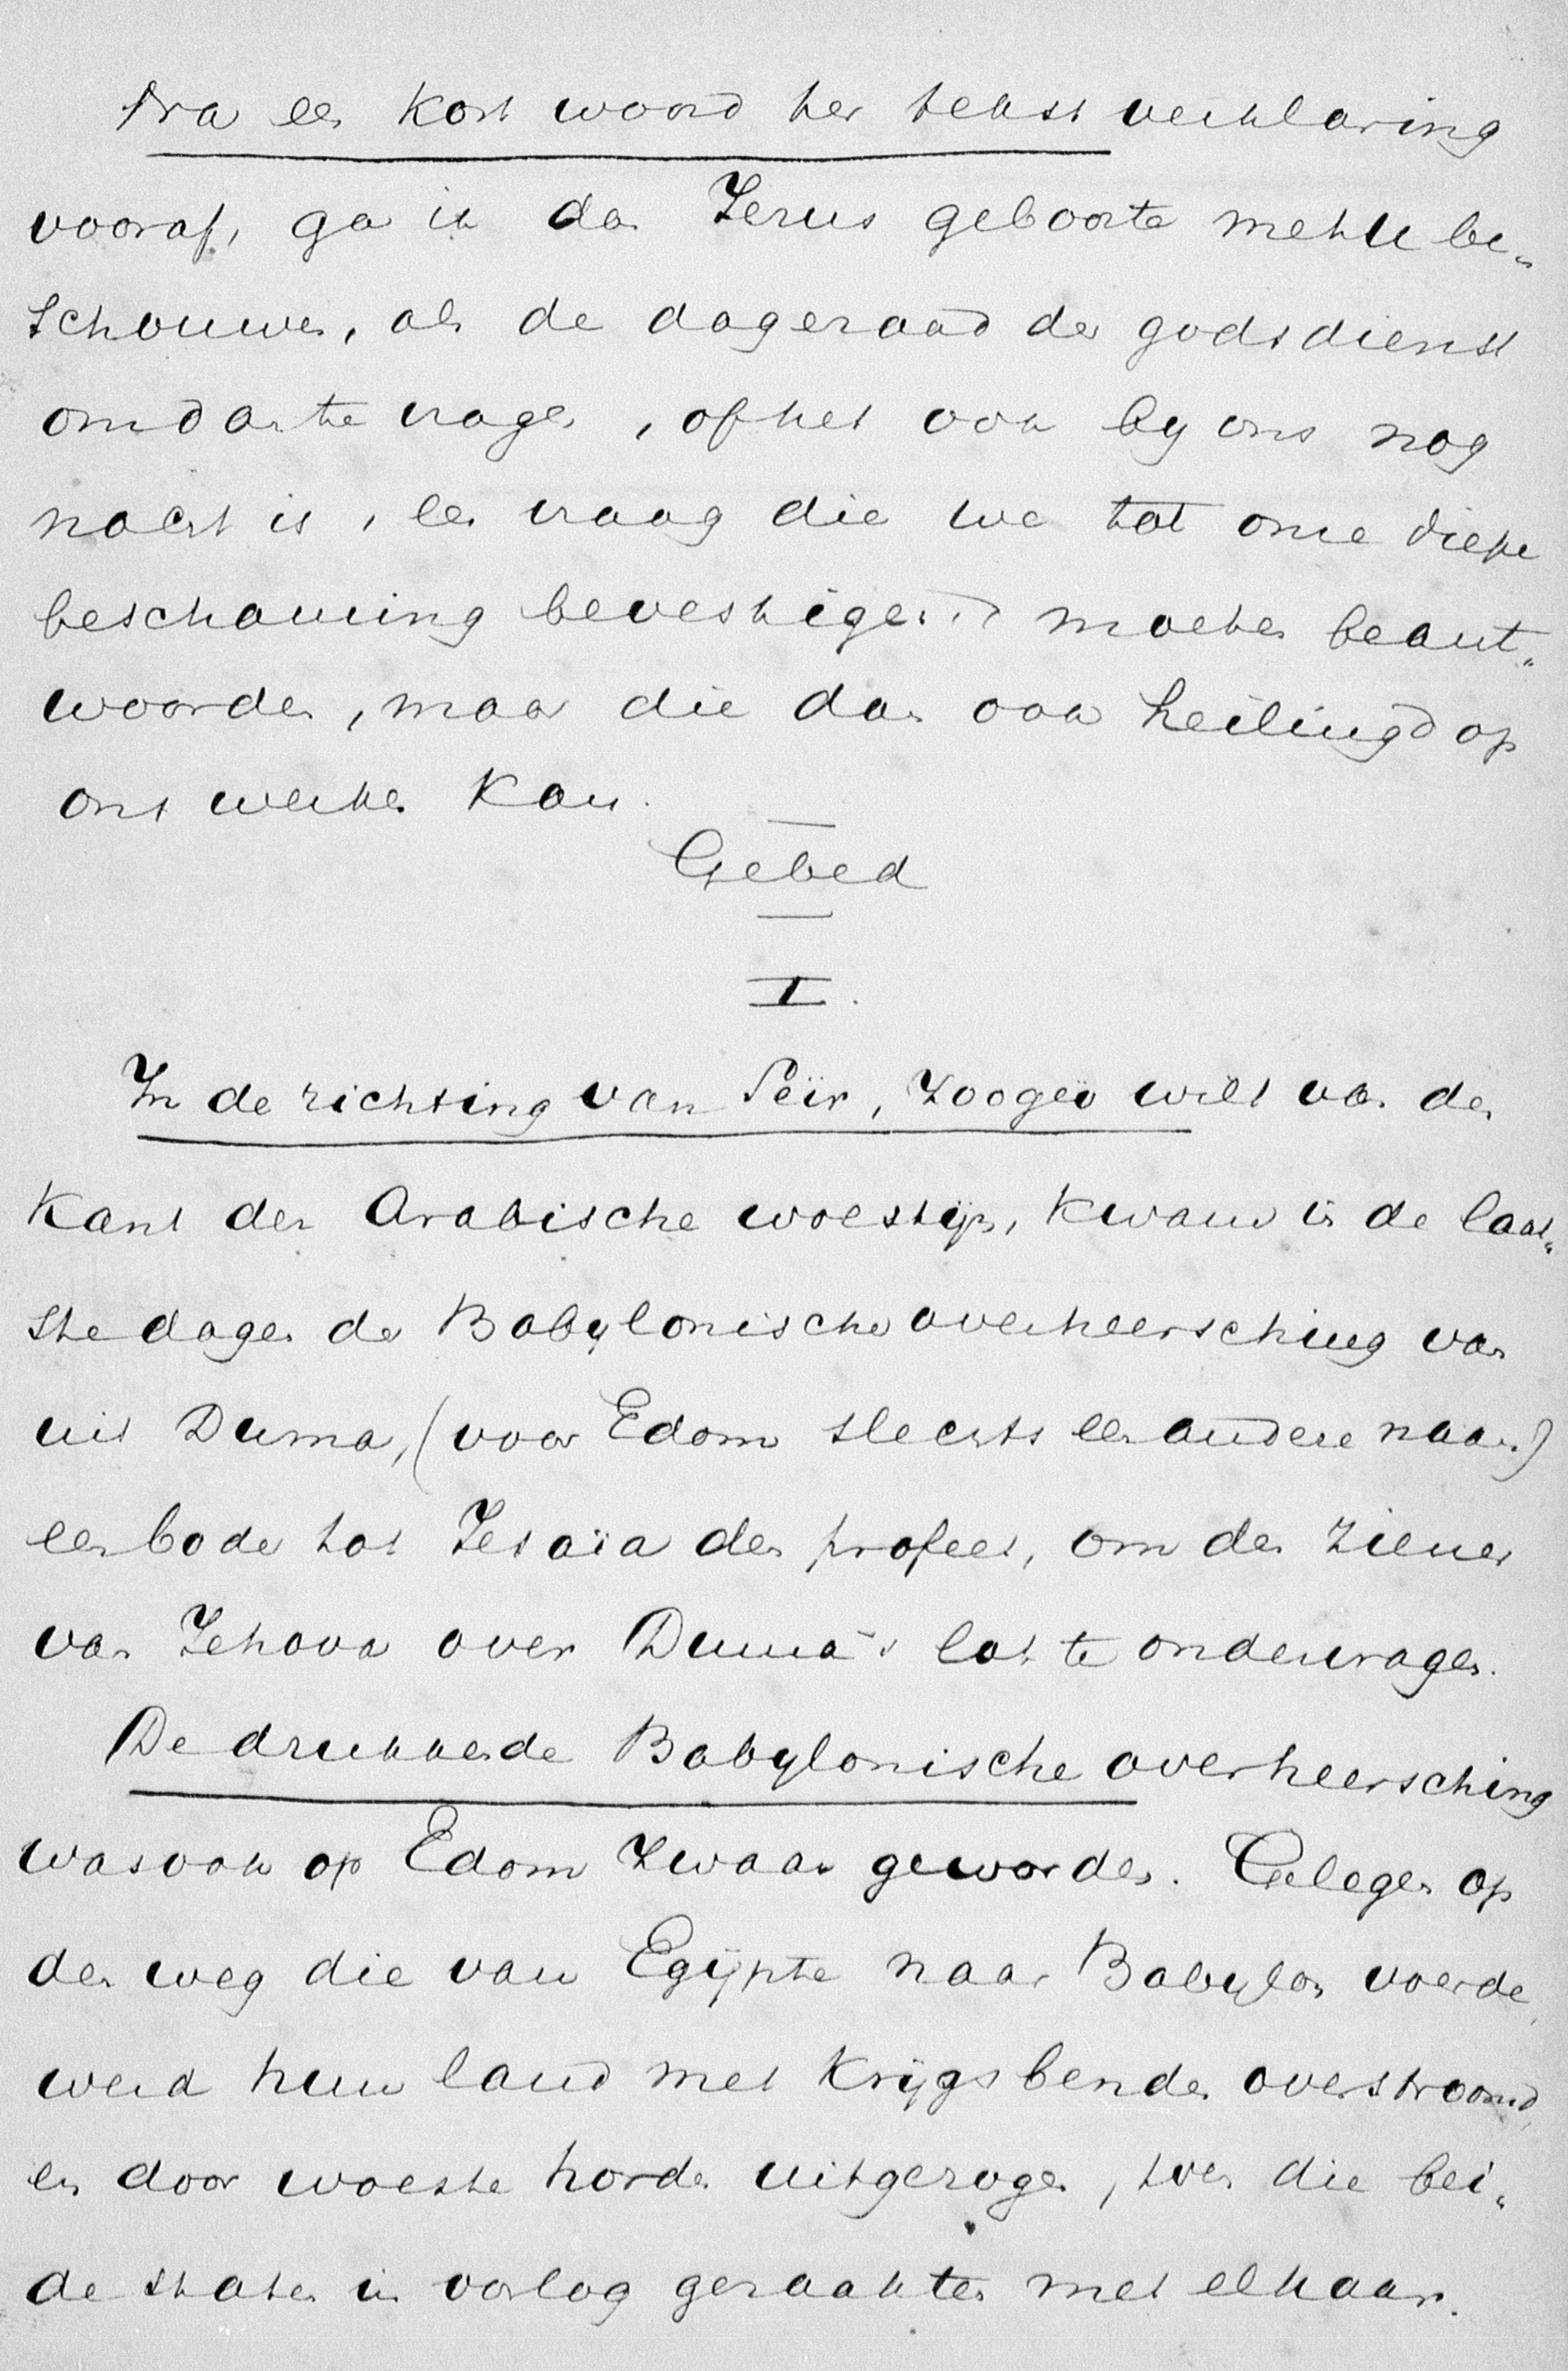 Na een kort woord ter tekstverklaring
vooraf, ga ik dan Jezus geboorte met U be„
schouwen, als de dageraad der godsdienst
om dan te vragen, of het ook by ons nog
nacht is, een vraag die we tot onze diepe
beschaming bevestigend moeten beant„
woorden, maar die dan ook heiligend op
ons werken kan.
Gebed
I.
In de richting van Seïr, zoogeo wilt van den
kant der Arabische woestijn, kwam in de laat„
ste dagen der Babylonische overheersching van
uit Duma, (voor Edom slechts een andere naam)
een bode tot Jesaïa den profeet, om den ziener
van Jehova over Duma's lot te ondervragen.
De drukkende Babylonische overheersching
was ook op Edom zwaar geworden. Gelegen op
den weg die van Egypte naar Babylon voerde,
werd hun land met krijgsbenden overstroomd,
en door woeste horden uitgezogen, toen die bei„
de staten in oorlog geraakten met elkaar.